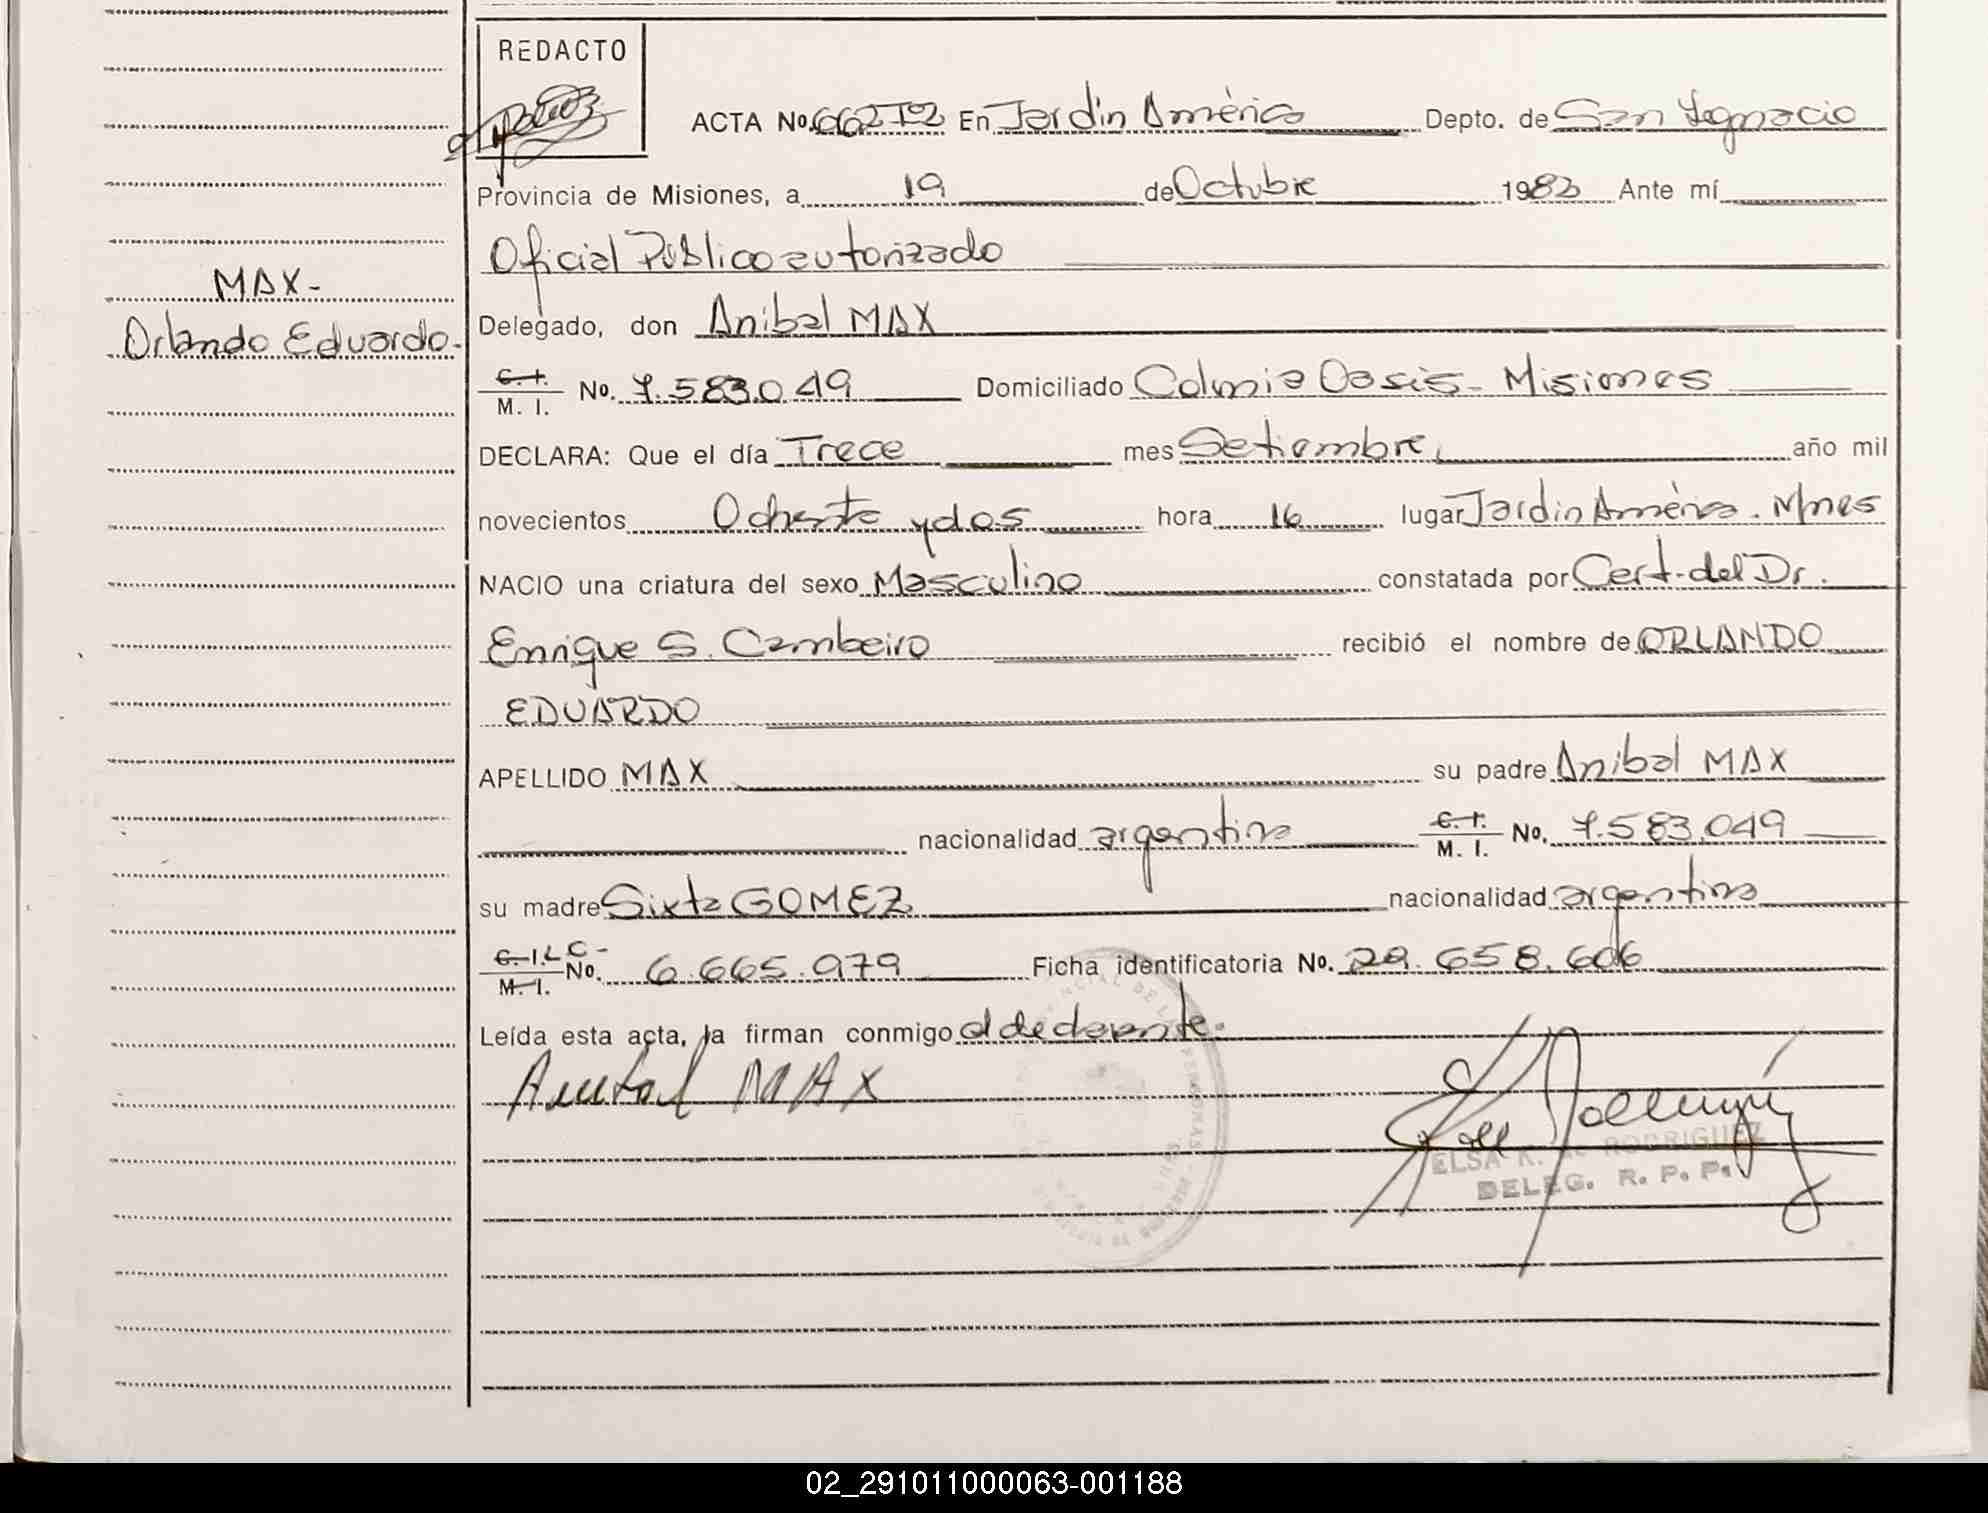 REDACTO
ACTA No. 662T°2 En Jardin América Depto. de San Ignacio
Provincia de Misiones, a 19 de Octubre 1982 Ante mí
Oficial Público autorizado
MAX-
Orlando Eduardo-
Delegado, don Anibal MAX
C. I. M. I. No. 7.583.049 Domiciliado Colonia Oasis - Misiones
DECLARA: Que el día Trece mes Setiembre, año mil
novecientos Ochenta y dos hora 16 lugar Jardin América. Mnes
NACIO una criatura del sexo Masculino constatada por Cert. del Dr.
Enrique S. Cambeiro recibió el nombre de ORLANDO
EDUARDO
APELLIDO MAX su padre Anibal MAX
nacionalidad argentina C. I. M. I. No. 7.583.049
su madre Sixta GOMEZ nacionalidad argentina
C. I. L C- M. I. No. 6.665.979 Ficha identificatoria No. 29.658.606
Leída esta acta, la firman conmigo el declarante.
Anibal MAX
ELSA K. de RODRIGUEZ
DELEG. R. P. P.
02_291011000063-001188